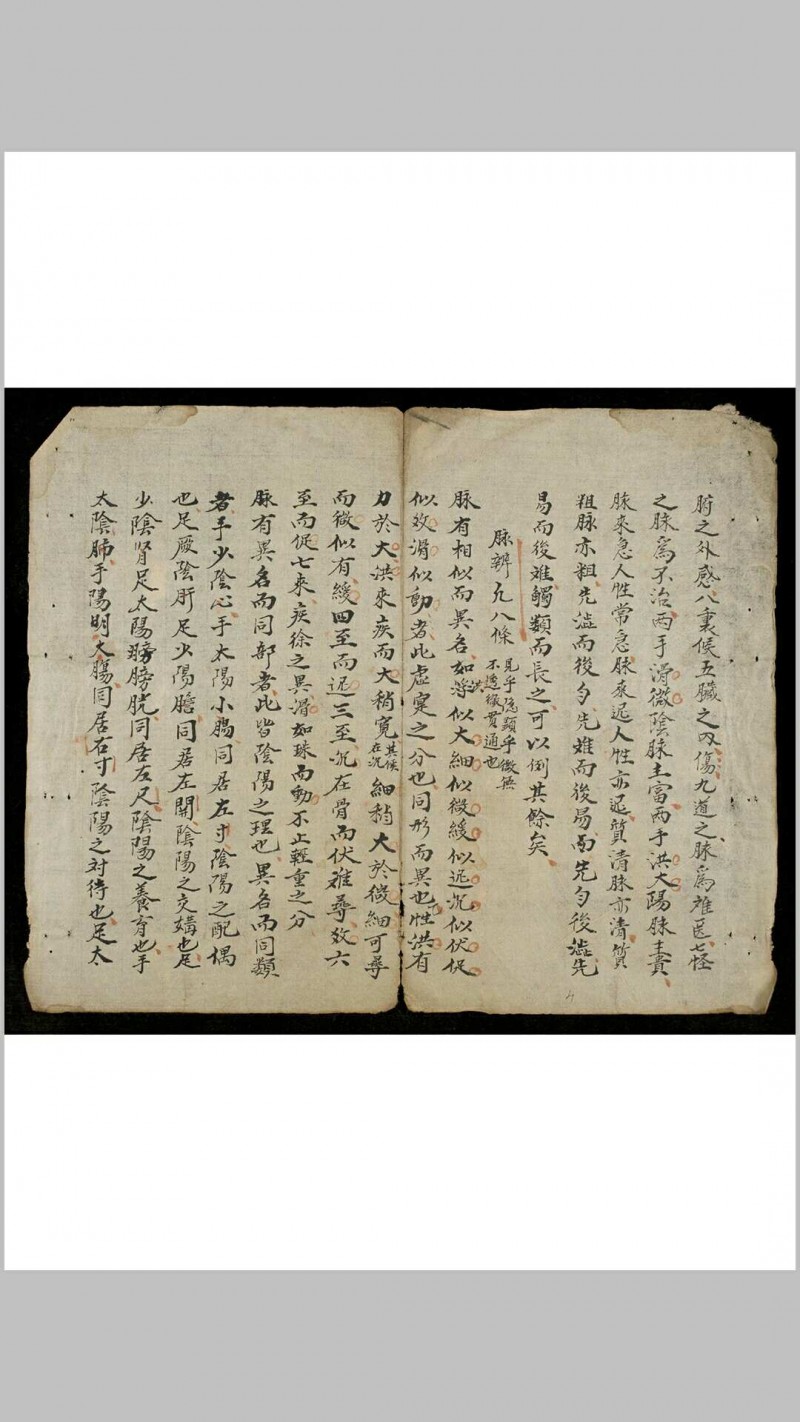 腑之外感八裏候五臟之內傷九道之脉爲雜医七怪
之脉爲不治两手滑微陰脉主富两手洪大陽脉主貴
脉來急人性常急脉來迟人性亦迟質清脉亦清質
粗脉亦粗先澁而後勻先难而後易而先勻後澁先
易而後难觸類而長之可以倒其餘矣
脉辨 凡八條 見乎隐顯乎微無
不透徹貫通也
脉有相似而異名如浮洪似大細似微緩似迟沉似伏促
似数滑似動者此虛寔之分也同形而異也性洪有
力於大洪來疾而大稍寬其候在沉細稍大於微細可尋
而微似有緩四至而迟三至沉在骨而伏难尋数六
至而促七來疾徐之異滑如珠而動不止輕重之分
脉有異名而同部者此皆陰陽之理也異名而同類
者手少陰心手太陽小膓同居左寸陰陽之配偶
也足厥陰肝足少陽膽同居左関陰陽之交媾也足
少陰肾足太陽膀膀胱同居左尺陰陽之養育也手
太陰肺手陽明大膓同居右寸陰陽之对待也足太